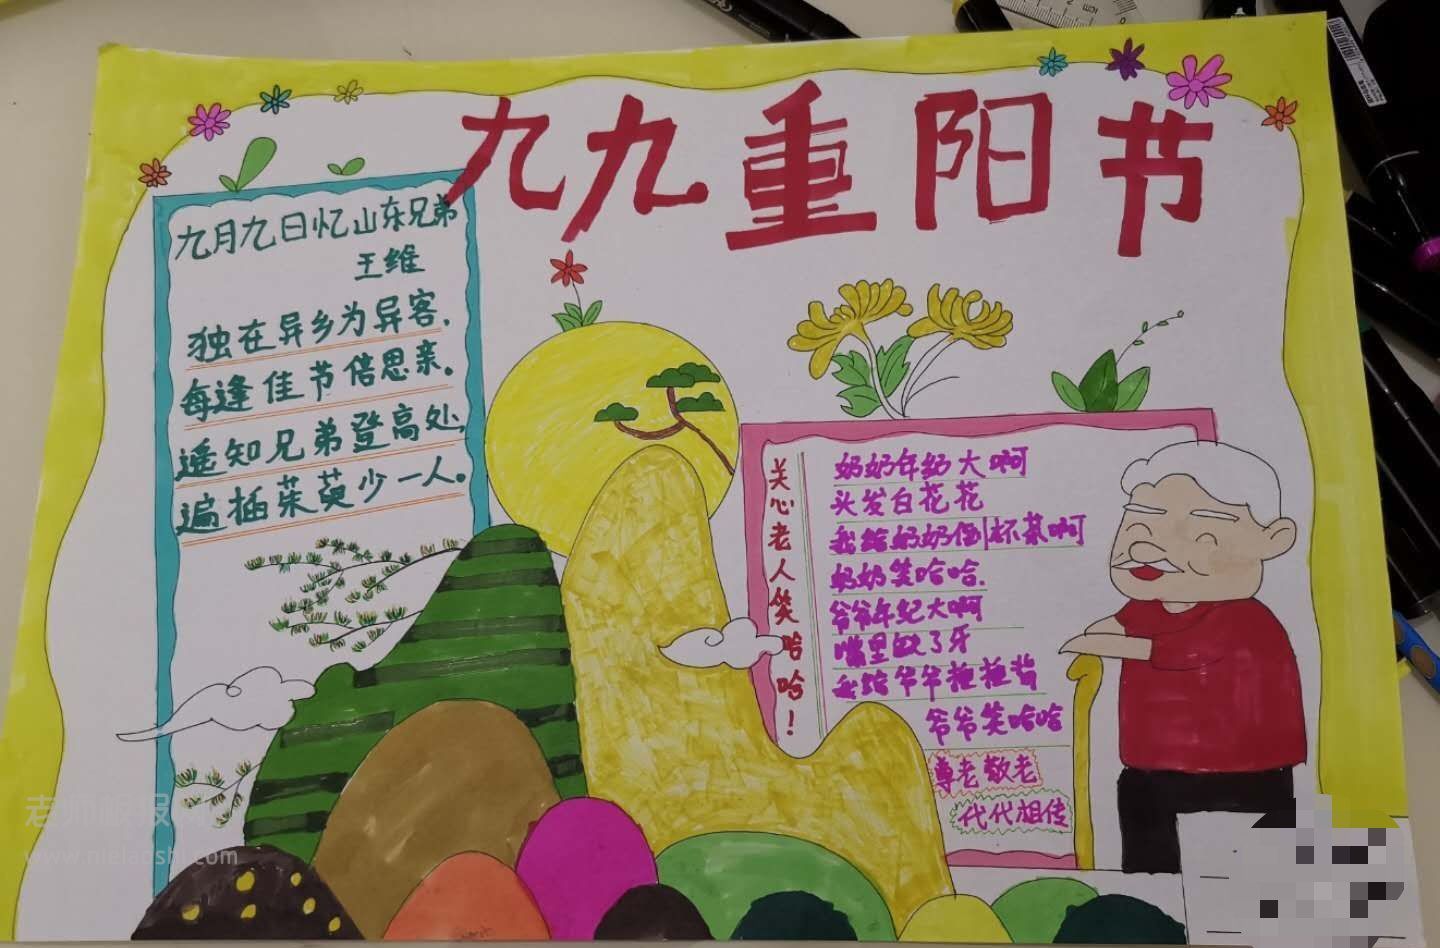 九九重阳节
九月九日忆山东兄弟
王维
独在异乡为异客.
每逢佳节倍思亲.
遥知兄弟登高处,
遍插茱萸少一人。
关心老人笑哈哈！
奶奶年纪大啊
头发白花花
我给奶奶倒1杯茶啊
奶奶笑哈哈.
爷爷年纪大啊
嘴里缺了牙
我给爷爷捶捶背
爷爷笑哈哈
尊老敬老
代代相传
老师板报网
www.nielaoshi.com